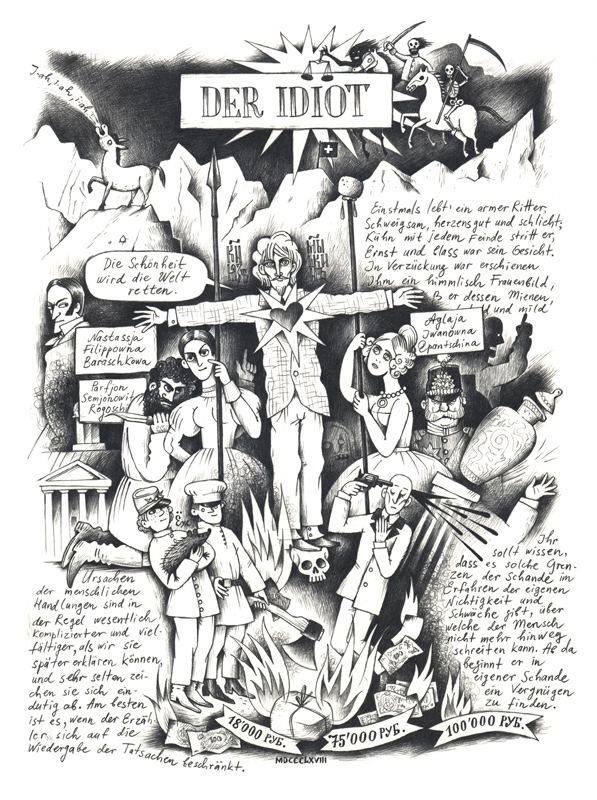 I-ah, i-ah, i-ah
DER IDIOT
Einstmals lebt' ein armer Ritter,
Schweigsam, herzensgut und schlicht;
Kühn mit jedem Feinde stritt er,
Ernst und blass war sein Gesicht.
In Verzückung war erschienen
Ihm ein himmlisch Frauenbild,
ß er dessen Mienen,
und mild
Die Schönheit
wird die Welt
retten.
Nastassja
Filippowna
Baraschkowa
Parfjon
Semjonowit
Rogosch
Aglaja
Iwanowna
Epantschina
Ursachen
der menschlichen
Handlungen sind in
der Regel wesentlich
komplizierter und viel-
fältiger, als wir sie
später erklären können,
und sehr selten zei-
chen sie sich ein-
dutig ab. Am besten
ist es, wenn der Erzäh
ler sich auf die
Wiedergabe der Tatsachen beschränkt.
Ihr
sollt wissen,
dass es solche Gren-
zen der Schande im
Erfahren der eigenen
Nichtigkeit und
Schwäche gibt, über
welche der Mensch
nicht mehr hinweg
schreiten kann. Ab da
beginnt er in
eigener Schande
ein Vergnügen
zu finden.
100
18'000 РУБ.
75'000 РУБ.
100'000 РУБ.
MDCCCLXVIII